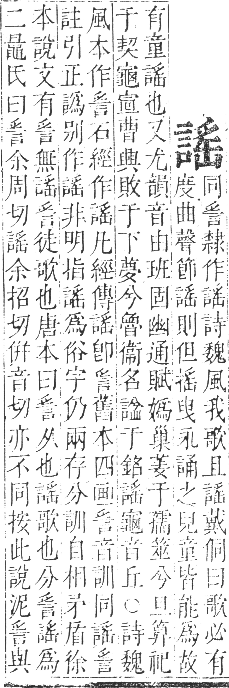 謠
同䚻隸作謠詩魏風我歌且謠戴侗曰歌必有
度曲聲節謠則但搖曳永誦之兒童皆能為故
有童謠也又尤韻音由班固幽通賦媯巢姜于孺筮兮旦算祀
于契龜宣曹興敗于下夢兮魯衞名諡于銘謠龜音丘○詩魏
風本作䚻石經作謠凡經傳謠即䚻舊本四画䚻音訓同謠䚻
註引正譌別作謠非明指謠為俗字仍兩存分訓自相矛盾徐
本說文有䚻無謠䚻徒歌也唐本曰䚻从也謠歌也分䚻謠為
二鼂氏曰䚻余周切謠余招切併音切亦不同按此說泥䚻與